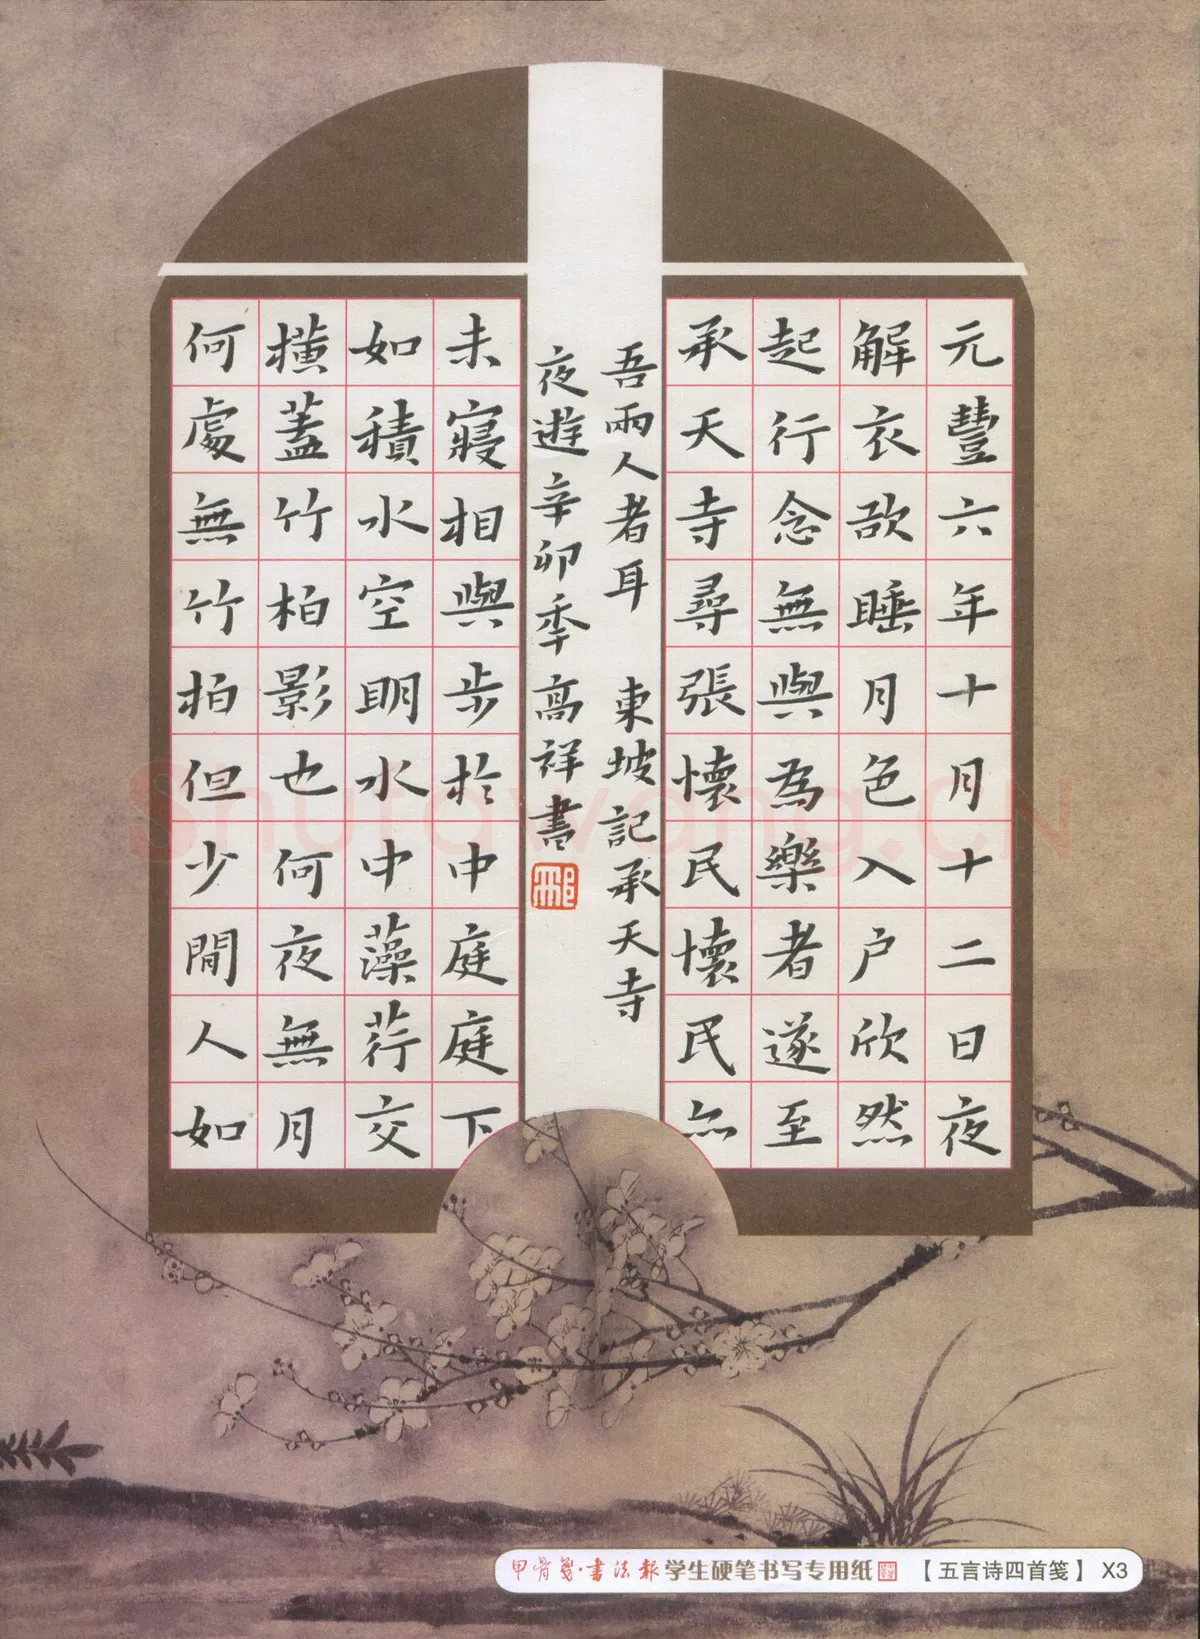 元豐六年十月十二日夜
解衣欲睡月色入户欣然
起行念無與為樂者遂至
承天寺尋張懷民懷民亦
未寢相與步於中庭庭下
如積水空明水中藻荇交
橫蓋竹柏影也何夜無月
何處無竹柏但少閒人如
吾兩人者耳 東坡記承天寺
夜遊辛卯季高祥書
邢
Shufawang.CN
甲骨箋·書法報学生硬笔书写专用纸【五言诗四首笺】 X3